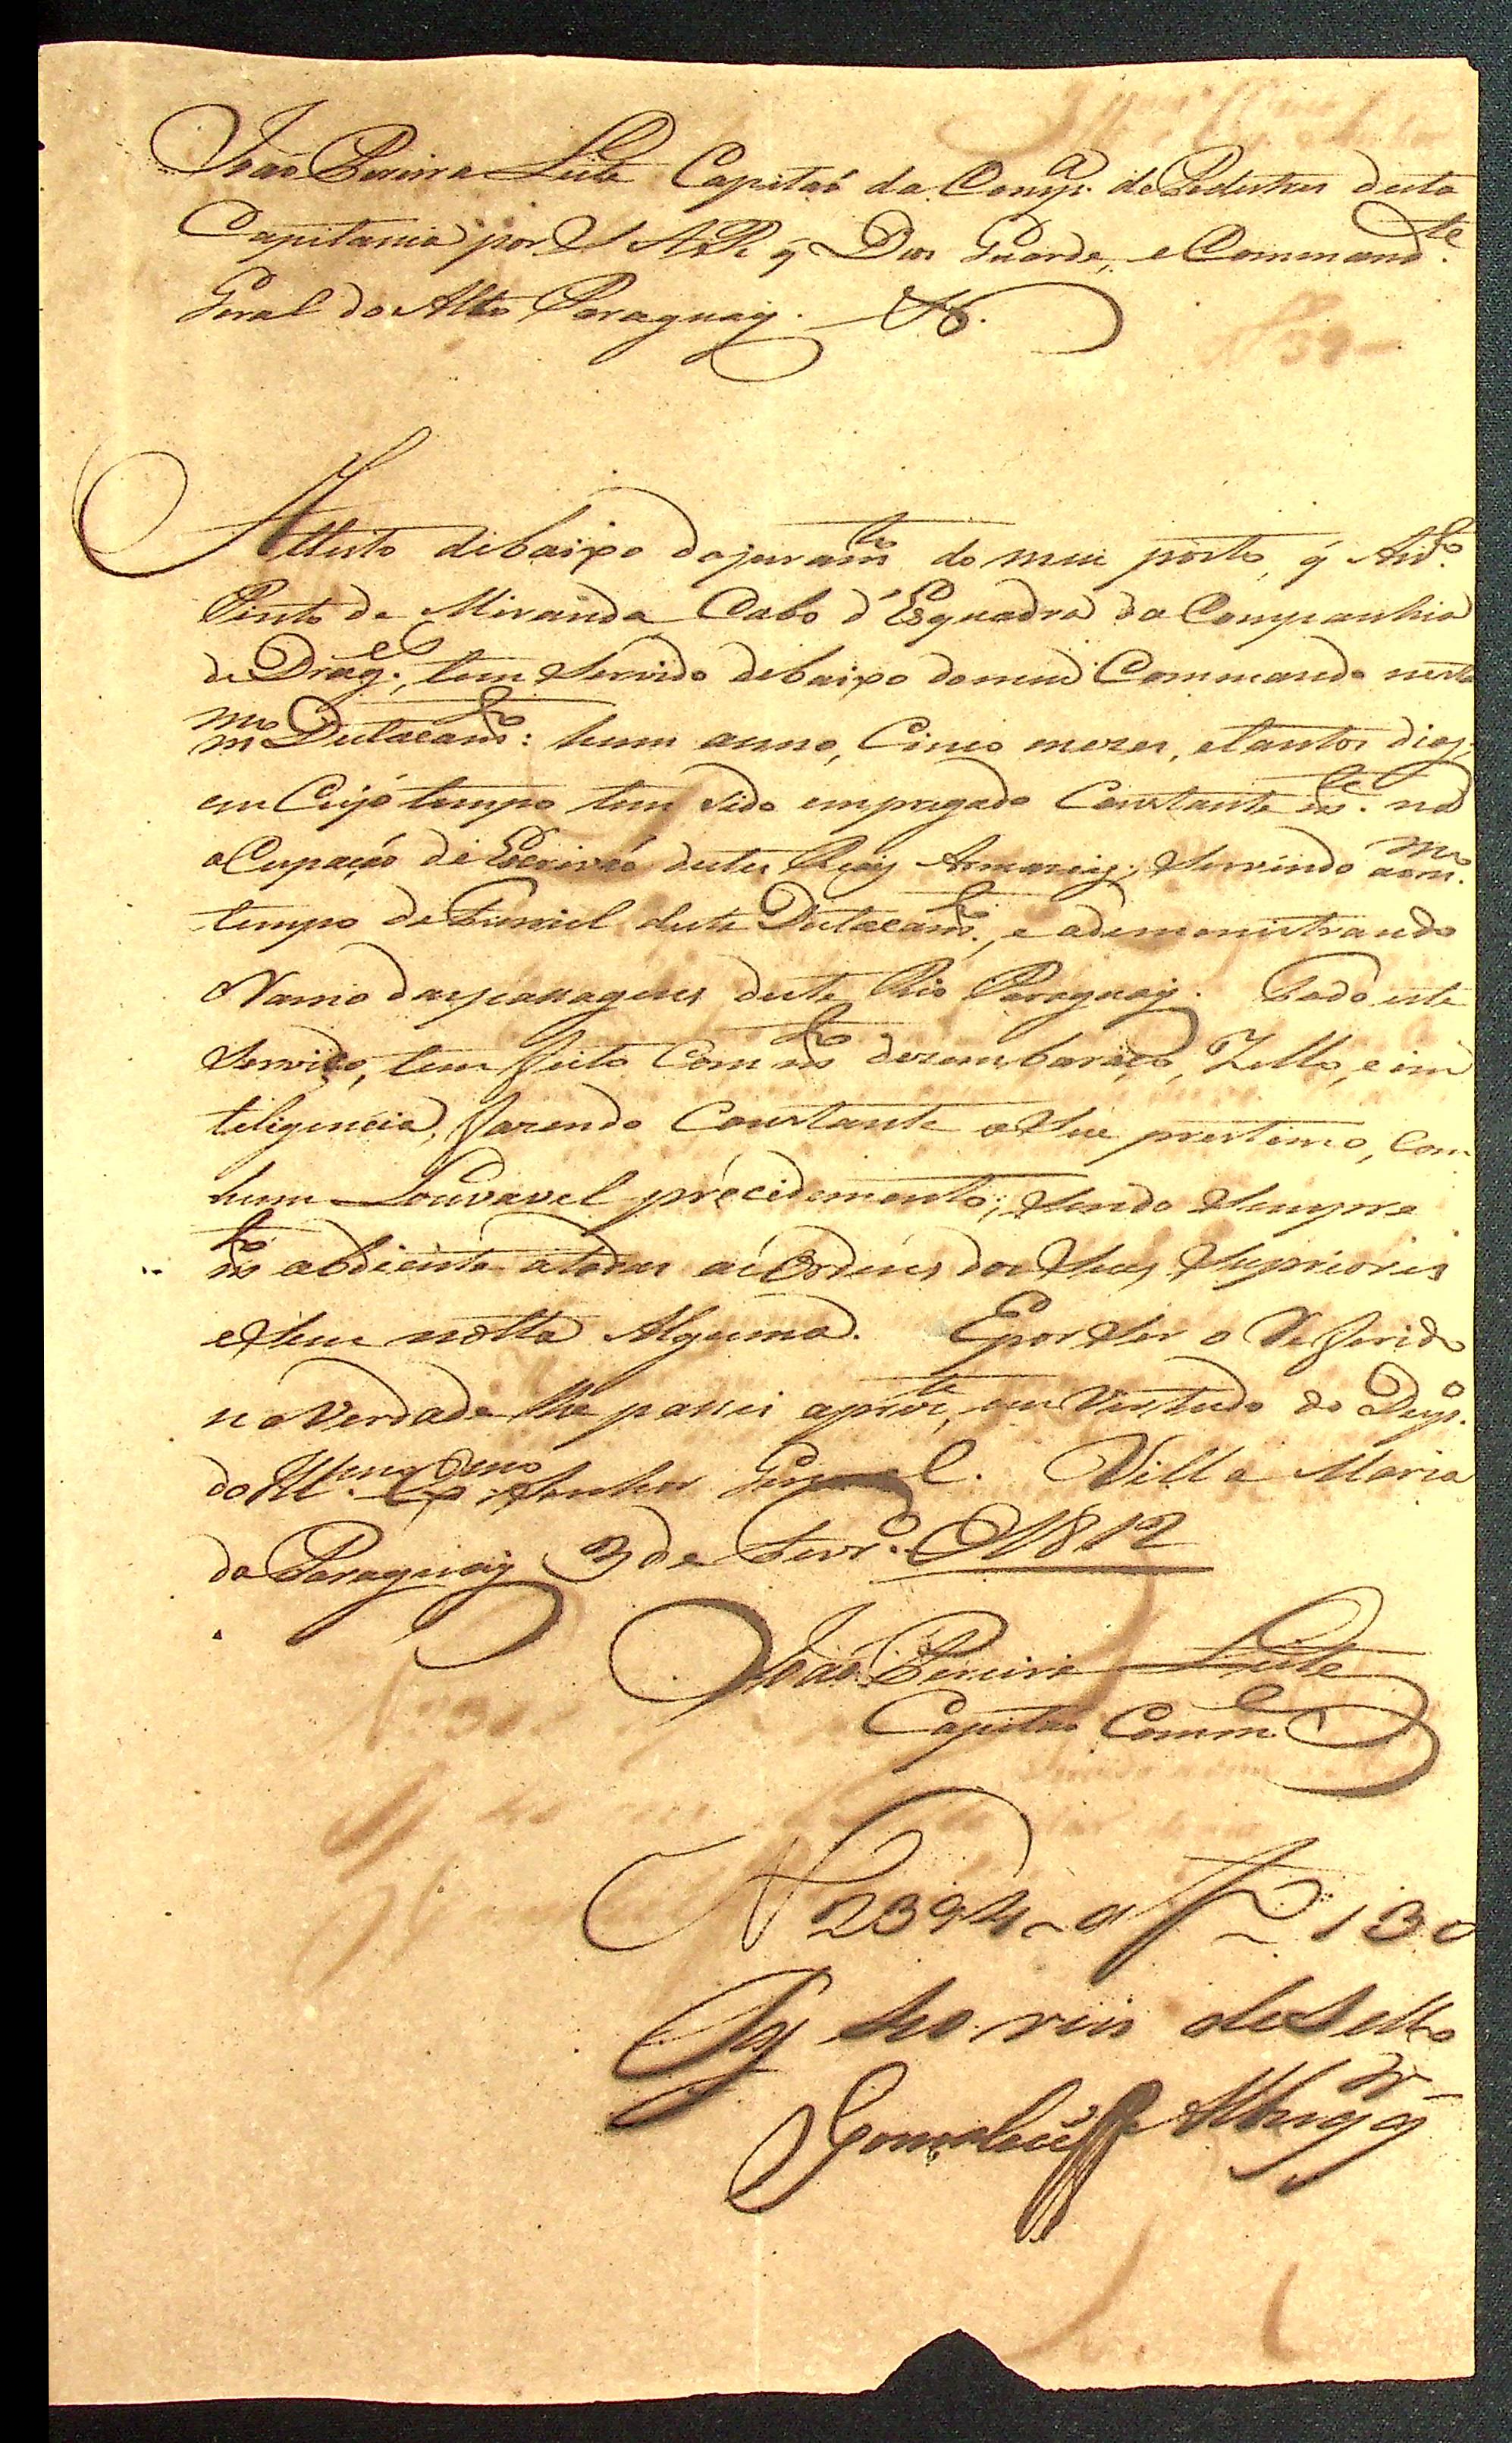 João Pereira Leite Capitaó da Comp.ª de Pedestres desta
Capitania por S A R q̃ Deos Guarde, e Command.te
Geral do Alto Paraguay. &.
Attesto debaixo do juram.to do meu posto, q̃ Ant.º
Pinto de Miranda Cabo d'Esquadra da Companhia
de Drag.es, tem Servido debaixo do meu Commando neste
m.mo Destacam.to: hum anno, Cinco mezes, e tantos dias,
em Cujo tempo tem sido empregado Constantem.te na
oCupação de Escrivaó destes Reais Armazeis, Servindo ao m.mo
tempo de Furriel deste Destacam.to, e administrando
o Ramo das passagens deste Rio Paraguay. Todo este
Serviço, tem feito Com m.to dezembaraço, Zello, e in
teligencia, fazendo Constante o Seu prestimo, com
hum Louvavel procidemento, Sendo Sempre
m.to obdiente a todas as Ordens dos Seus Superiores
e Sem notta Alguma. E por Ser o Referido
na Verdade lhe passei a prez.te, em Virtude do Desp.º
do Ill.mo Ex.mo Senhor General. Villa Maria
do Paraguay 3 de Fevr.º d 1812
João Pereira Leite
Capitão Comm.e
N 2394 a f 130
Pg 40 reis de Sello